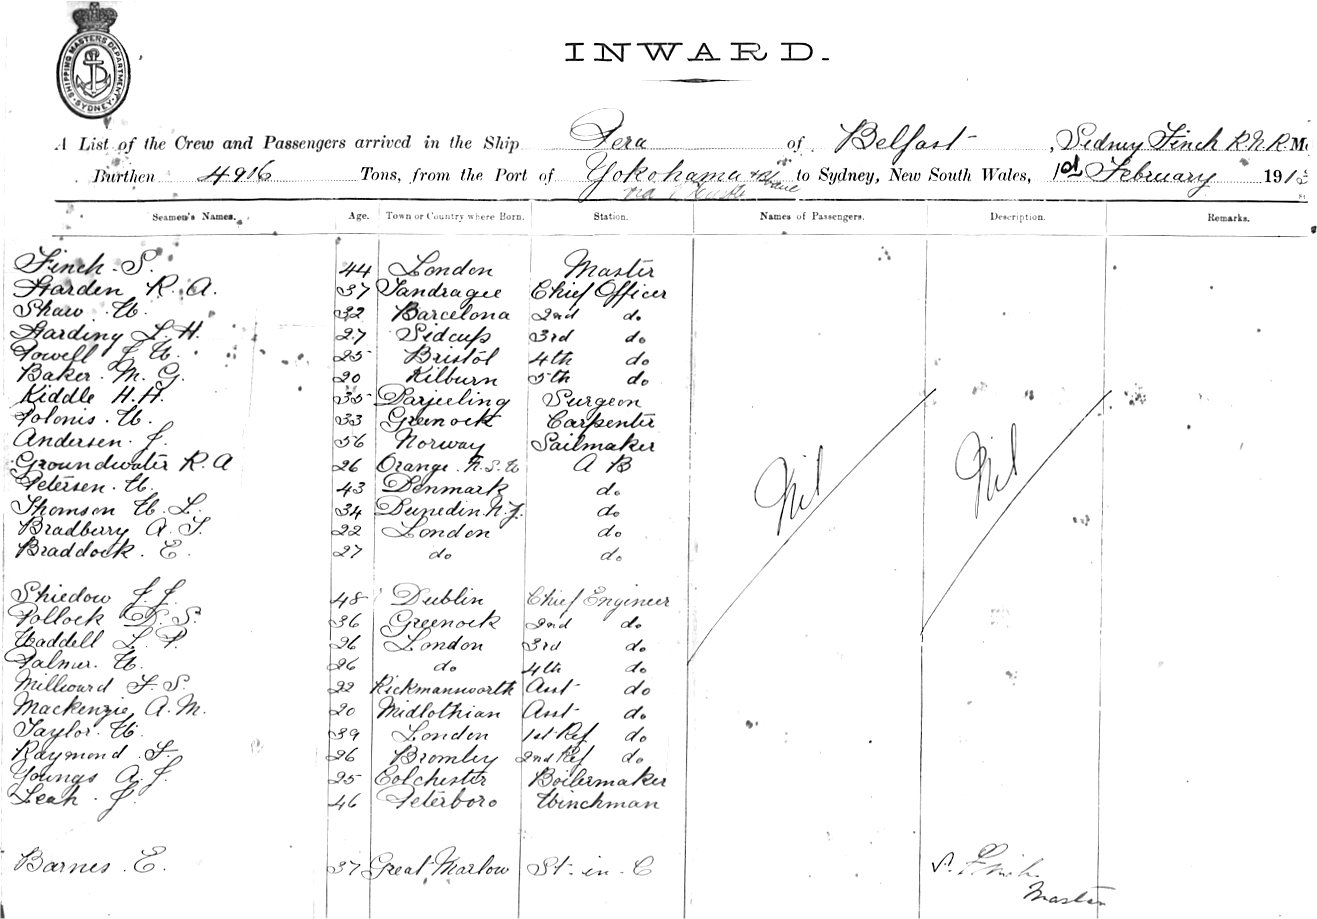 SHIPPING MASTERS DEPARTMENT SYDNEY
INWARD.
A List of the Crew and Passengers arrived in the Ship Pera of Belfast, Sidney Finch R N R
Burthen 4916 Tons, from the Port of Yokohama to Sydney, New South Wales, 1st February 1913
via
Seamen's Names. Age. Town or Country where Born. Station. Names of Passengers. Description. Remarks.
Finch. S. 44 London Master
Harden R. A. 37 Tandragee Chief Officer
Shaw W. 32 Barcelona 2nd do
Harding L. H. 27 Sidcup 3rd do
Powell J W. 25 Bristol 4th do
Baker. M. G. 20 Kilburn 5th do
Kiddle H. H. 35 Darjeeling Surgeon
Polonis. W. 33 Greenock Carpenter
Andersen. J. 56 Norway Sailmaker
Groundwater R. A 26 Orange. N. S. W A B
Petersen. W. 43 Denmark do
Thomson W. L. 34 Dunedin N. Z. do
Bradberry A. T. 22 London do
Braddock. E. 27 do do
Nil Nil
Shiedow J. J. 48 Dublin Chief Engineer
Pollock D. S. 36 Greenock 2nd do
Waddell L. P. 26 London 3rd do
Palmer. W. 26 do 4th do
Millward F. S. 22 Rickmansworth Asst do
Mackenzie A. M. 20 Midlothian Asst do
Taylor. W. 39 London 1st Ref do
Raymond F. 26 Bromley 2nd Ref do
Youngs A. J. 25 Colchester Boilermaker
Leah. J. 46 Peterboro Winchman
Barnes. E. 37 Great Marlow St. in. C
S. Finch
Master